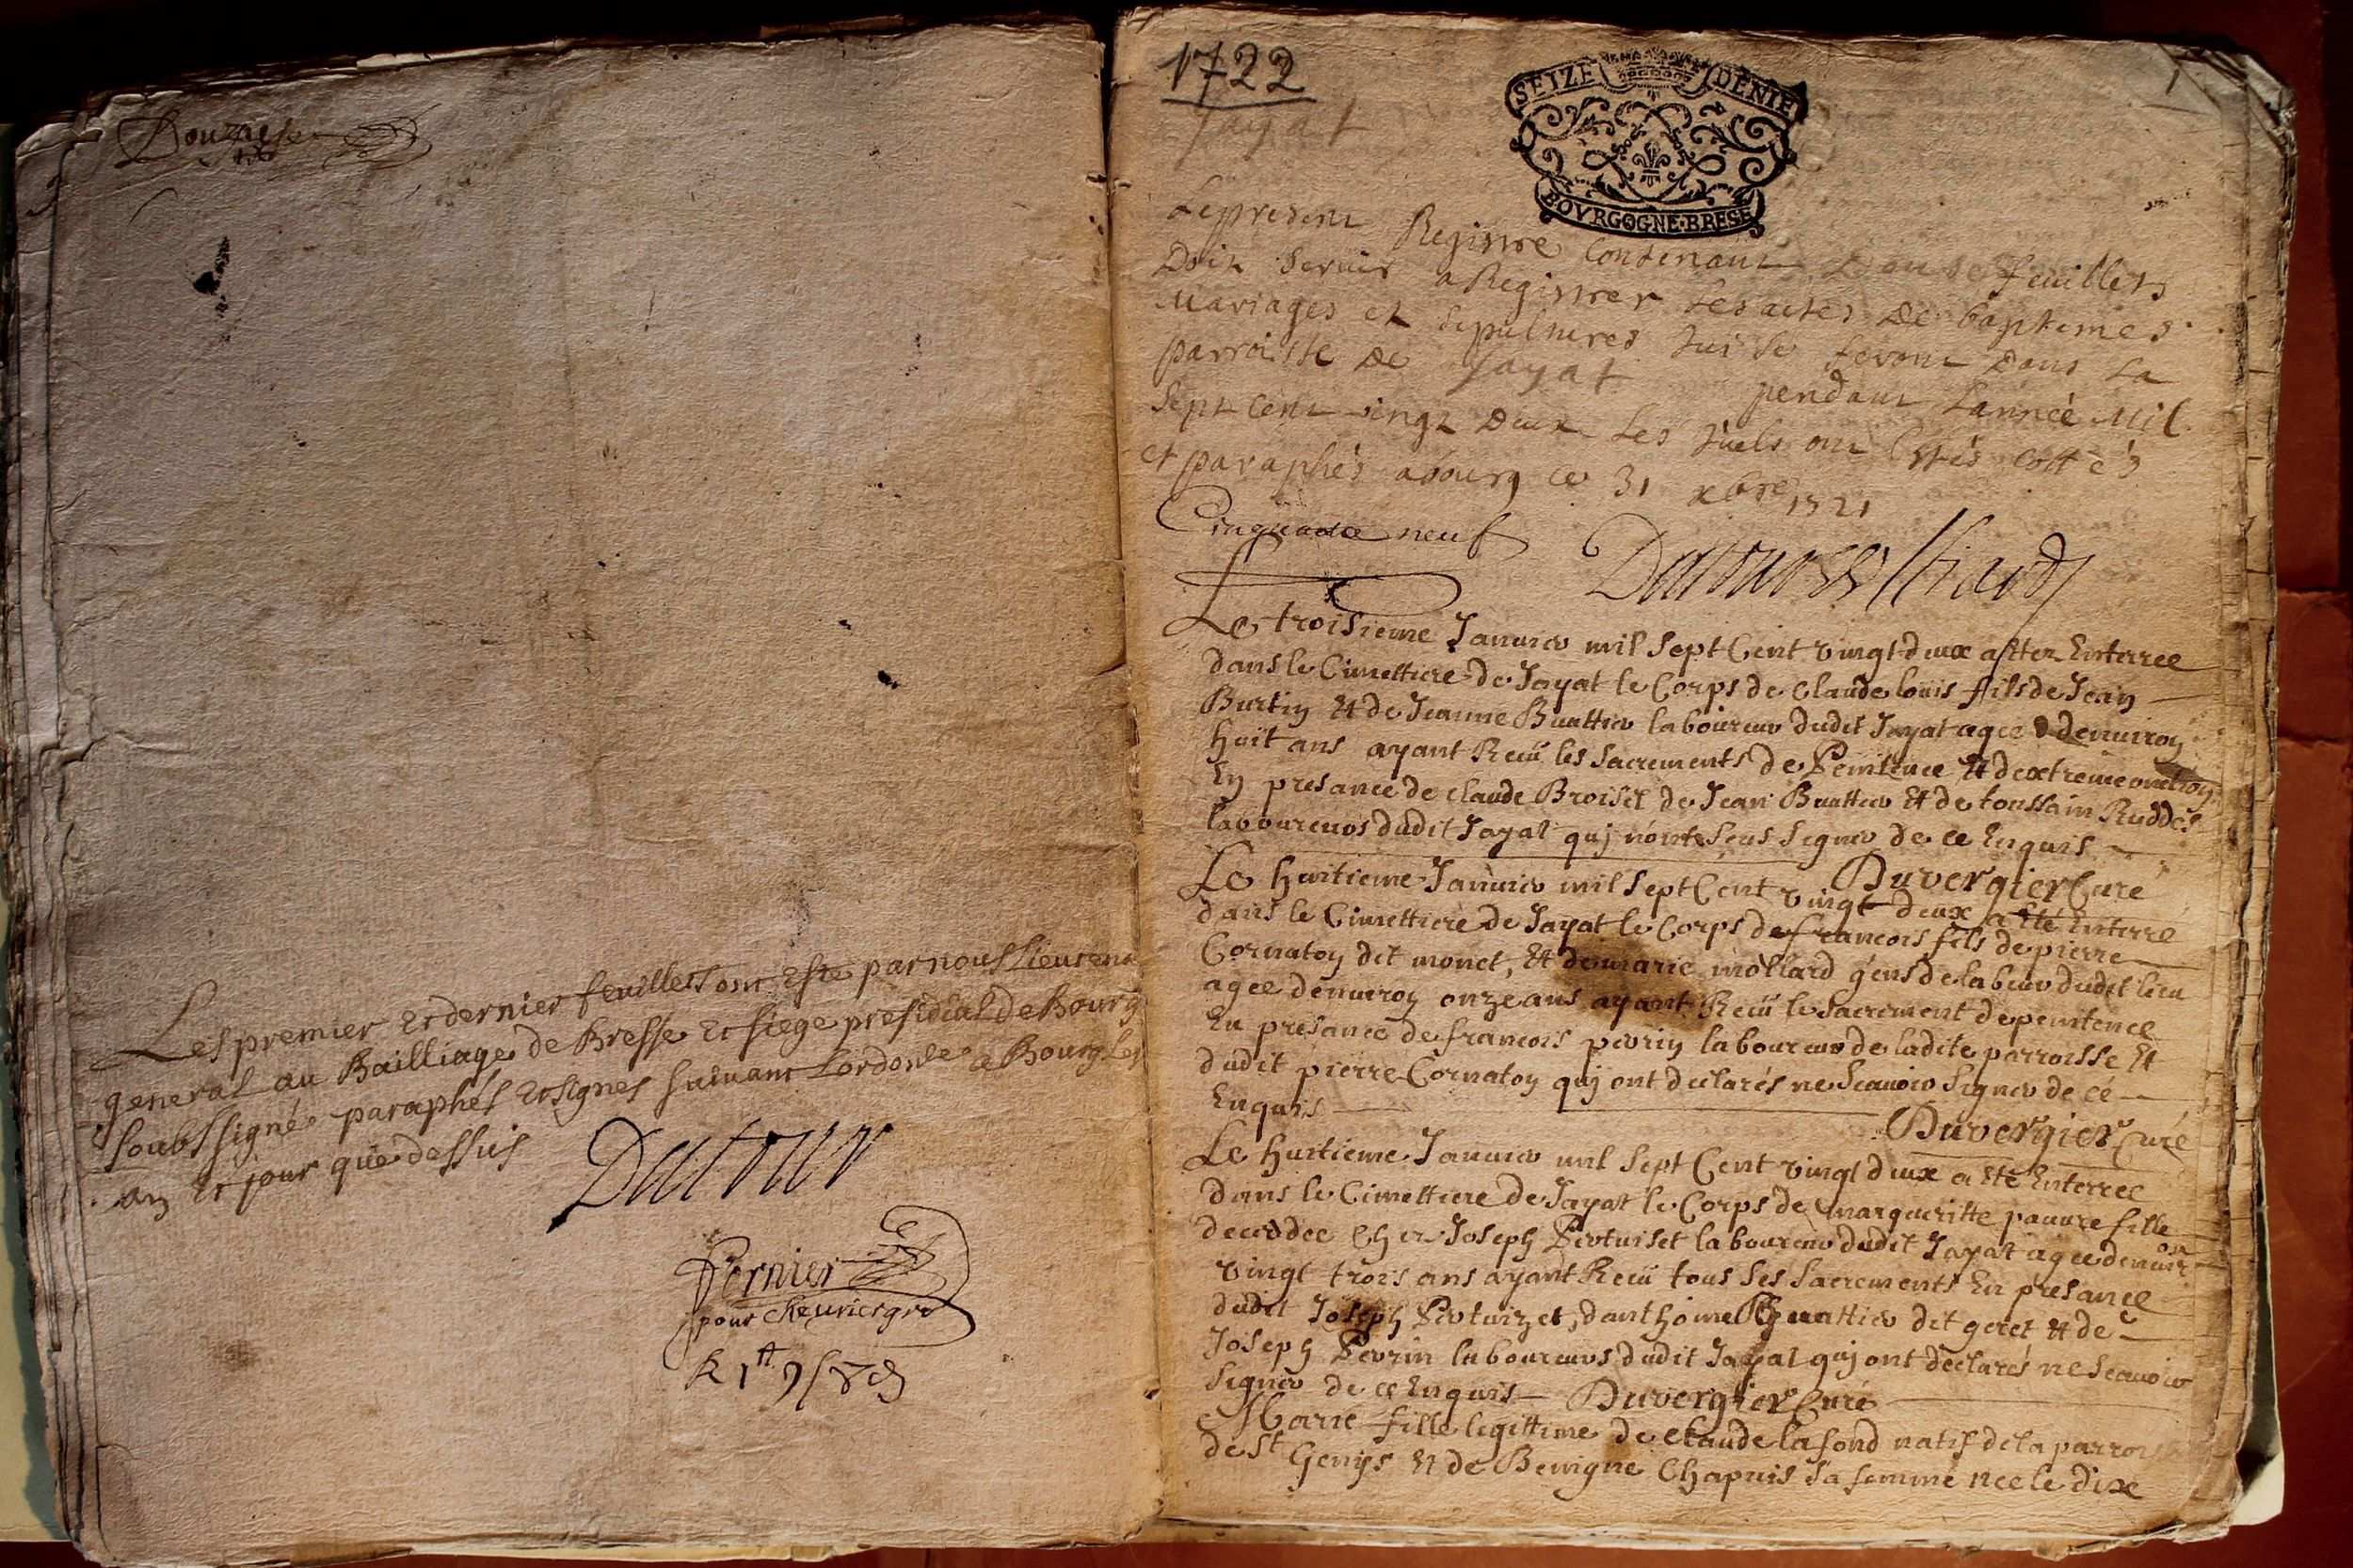 Douziesme
Les premier et dernier feuilles ont este par nous Lieutena
general au Bailliage de Bresse et siege presidial de Bourg
soubssigné paraphés et signés suivant Lordonce a Bourg Les
an et jour que dessus
Dutour
Pernier
pour
1722
Jayat
SEIZE DENIE
BOVRGOGNE·BRESE
Le present Registre Contenant Douse feuillets
Doit servir a Registrer Les actes De baptemes
Mariages et sepultures qui se feront Dans La
parroisse De Jayat pendant Lannée Mil
Sept cent vingt Deux Les quels ont Estés cottés
et paraphés a bourg ce 31 xbre 1721
Cinquante neuf
Le troisieme Januier mil sept Cent vingt deux a ester Enterree
dans le Cimettiere de Jayat le Corps de Claude louis fils de Jean
Burtin Et de Jeanne Buattier laboureur dudit Jayat agee denuiron
huit ans ayant Receü les Sacrements de Penitence Et dextreme onction
En presance de Claude Broisel de Jean Buattier Et de toussain Ruddes
laboureurs dudit Jayat quj nont sceus signer de ce Enquis
Duvergier Curé
Le huitieme Januier mil sept Cent vingt deux a Eté Enterre
dans le Cimettiere de Jayat le Corps de francois fils de pierre
Cornaton dit monet, Et de marie mollard gens de labeur dudit lieu
agee denuiron onze ans ayant Receü le Sacrement de penitence
En presance de francois peurin laboureur de ladite parroisse Et
dudit pierre Cornaton quj ont declarés ne Scauoir Signer de cé
Enquis
Duvergier Curé
Le huitieme Januier mil sept Cent vingt deux a Eté Enterree
dans le Cimettiere de Jayat le Corps de margueritte pauure fille
decedee Chez Joseph Pertuiset laboureur dudit Jayat agee denuiron
vingt trois ans ayant Receü tous ses Sacrements En presance
dudit Joseph Pertuizet, danthoine Buattier dit geret Et de
Joseph Peurin laboureurs dudit Jayat quj ont déclarés ne Scauoir
Signer de ce Enquis Duvergier Curé
Marie fille legittime de Claude lafond natif de la parrois
de St Genys Et de Benigne Chapuis sa femme nee le dixe